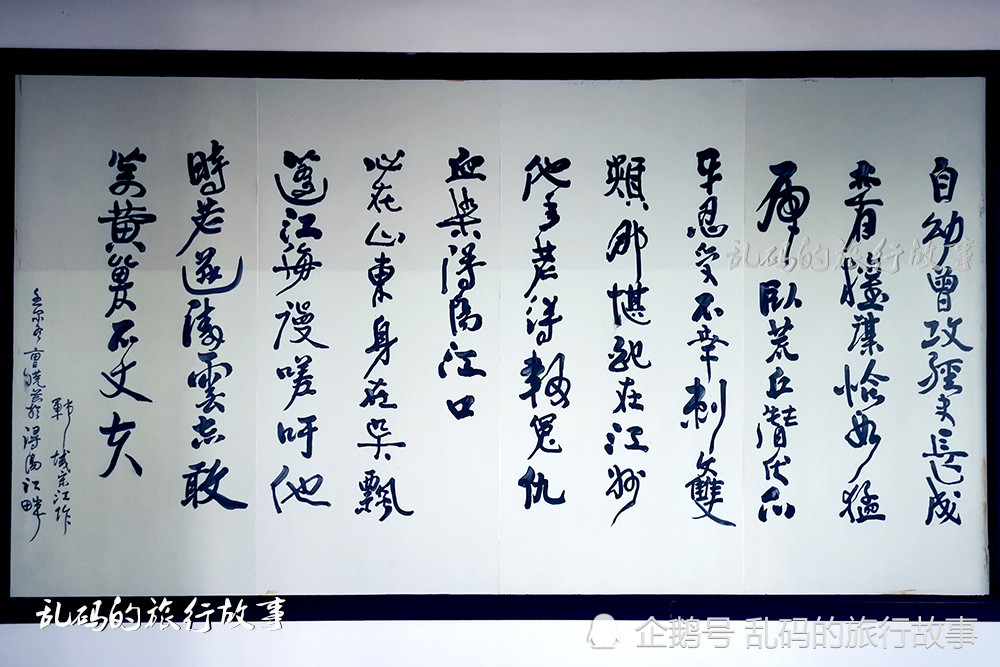 自幼曾攻經史長成
亦有權謀恰如猛
虎臥荒丘潛伏爪
牙忍受不幸刺雙
頰那堪配在江州
他年若得報冤仇
血染潯陽江口
心在山東身在吳飄
蓬江海謾嗟吁他
時若遂凌雲志敢
笑黃巢不丈夫
鄆城宋江作
潯陽江畔
乱码的旅行故事
乱码的旅行故事
企鹅号 乱码的旅行故事